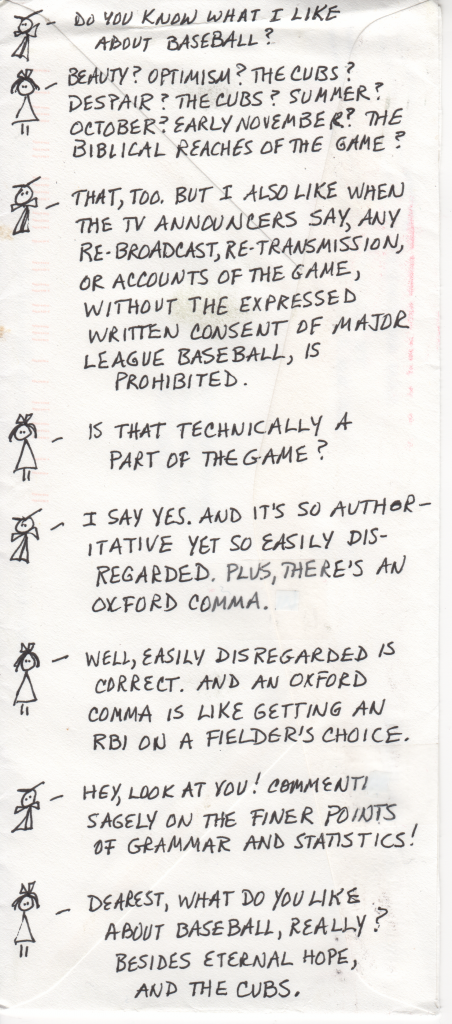 DO YOU KNOW WHAT I LIKE
ABOUT BASEBALL?
BEAUTY? OPTIMISM? THE CUBS?
DESPAIR? THE CUBS? SUMMER?
OCTOBER? EARLY NOVEMBER? THE
BIBLICAL REACHES OF THE GAME?
THAT, TOO. BUT I ALSO LIKE WHEN
THE TV ANNOUNCERS SAY, ANY
RE-BROADCAST, RE-TRANSMISSION,
OR ACCOUNTS OF THE GAME,
WITHOUT THE EXPRESSED
WRITTEN CONSENT OF MAJOR
LEAGUE BASEBALL, IS
PROHIBITED.
IS THAT TECHNICALLY A
PART OF THE GAME?
I SAY YES. AND IT'S SO AUTHOR-
ITATIVE YET SO EASILY DIS-
REGARDED. PLUS, THERE'S AN
OXFORD COMMA.
WELL, EASILY DISREGARDED IS
CORRECT. AND AN OXFORD
COMMA IS LIKE GETTING AN
RBI ON A FIELDER'S CHOICE.
HEY, LOOK AT YOU! COMMENTI
SAGELY ON THE FINER POINTS
OF GRAMMAR AND STATISTICS!
DEAREST, WHAT DO YOU LIKE
ABOUT BASEBALL, REALLY?
BESIDES ETERNAL HOPE,
AND THE CUBS.